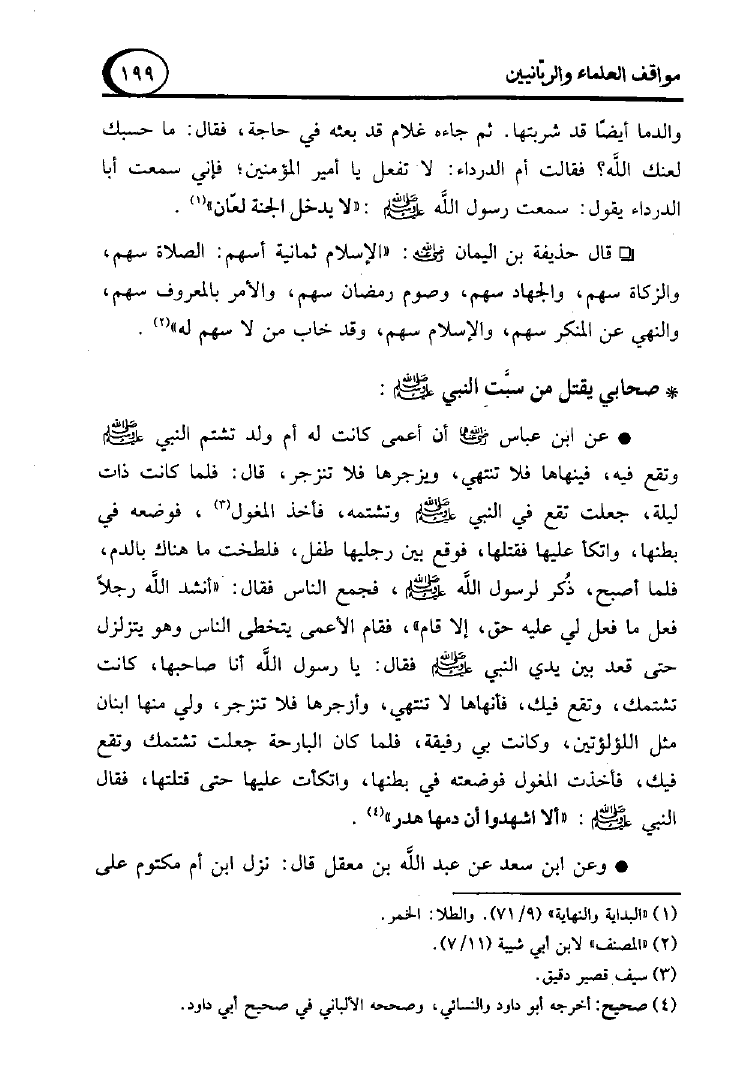 مواقف العلماء والربّانيين
١٩٩
والدما أيضًا قد شربتها. ثم جاءه غلام قد بعثه في حاجة، فقال: ما حبسك
لعنك اللَّه؟ فقالت أم الدرداء: لا تفعل يا أمير المؤمنين؛ فإني سمعت أبا
الدرداء يقول: سمعت رسول اللَّه ﷺ: «لا يدخل الجنة لعّان»(١) .
❑ قال حذيفة بن اليمان رضي الله عنه: «الإسلام ثمانية أسهم: الصلاة سهم،
والزكاة سهم، والجهاد سهم، وصوم رمضان سهم، والأمر بالمعروف سهم،
والنهي عن المنكر سهم، والإسلام سهم، وقد خاب من لا سهم له»(٢) .
* صحابي يقتل من سبَّت النبي ﷺ :
● عن ابن عباس رضي الله عنهما أن أعمى كانت له أم ولد تشتم النبي ﷺ
وتقع فيه، فينهاها فلا تنتهي، ويزجرها فلا تنزجر، قال: فلما كانت ذات
ليلة، جعلت تقع في النبي ﷺ وتشتمه، فأخذ المغول(٣) ، فوضعه في
بطنها، واتكأ عليها فقتلها، فوقع بين رجليها طفل، فلطخت ما هناك بالدم،
فلما أصبح، ذُكر لرسول اللَّه ﷺ ، فجمع الناس فقال: «أنشد اللَّه رجلاً
فعل ما فعل لي عليه حق، إلا قام»، فقام الأعمى يتخطى الناس وهو يتزلزل
حتى قعد بين يدي النبي ﷺ فقال: يا رسول اللَّه أنا صاحبها، كانت
تشتمك، وتقع فيك، فأنهاها لا تنتهي، وأزجرها فلا تنزجر، ولي منها ابنان
مثل اللؤلؤتين، وكانت بي رفيقة، فلما كان البارحة جعلت تشتمك وتقع
فيك، فأخذت المغول فوضعته في بطنها، واتكأت عليها حتى قتلتها، فقال
النبي ﷺ : «ألا اشهدوا أن دمها هدر»(٤) .
● وعن ابن سعد عن عبد اللَّه بن معقل قال: نزل ابن أم مكتوم على
(١) «البداية والنهاية» (٧١/٩). والطلا: الخمر.
(٢) «المصنف» لابن أبي شيبة (٧/١١).
(٣) سيف قصير دقيق.
(٤) صحيح: أخرجه أبو داود والنسائي، وصححه الألباني في صحيح أبي داود.